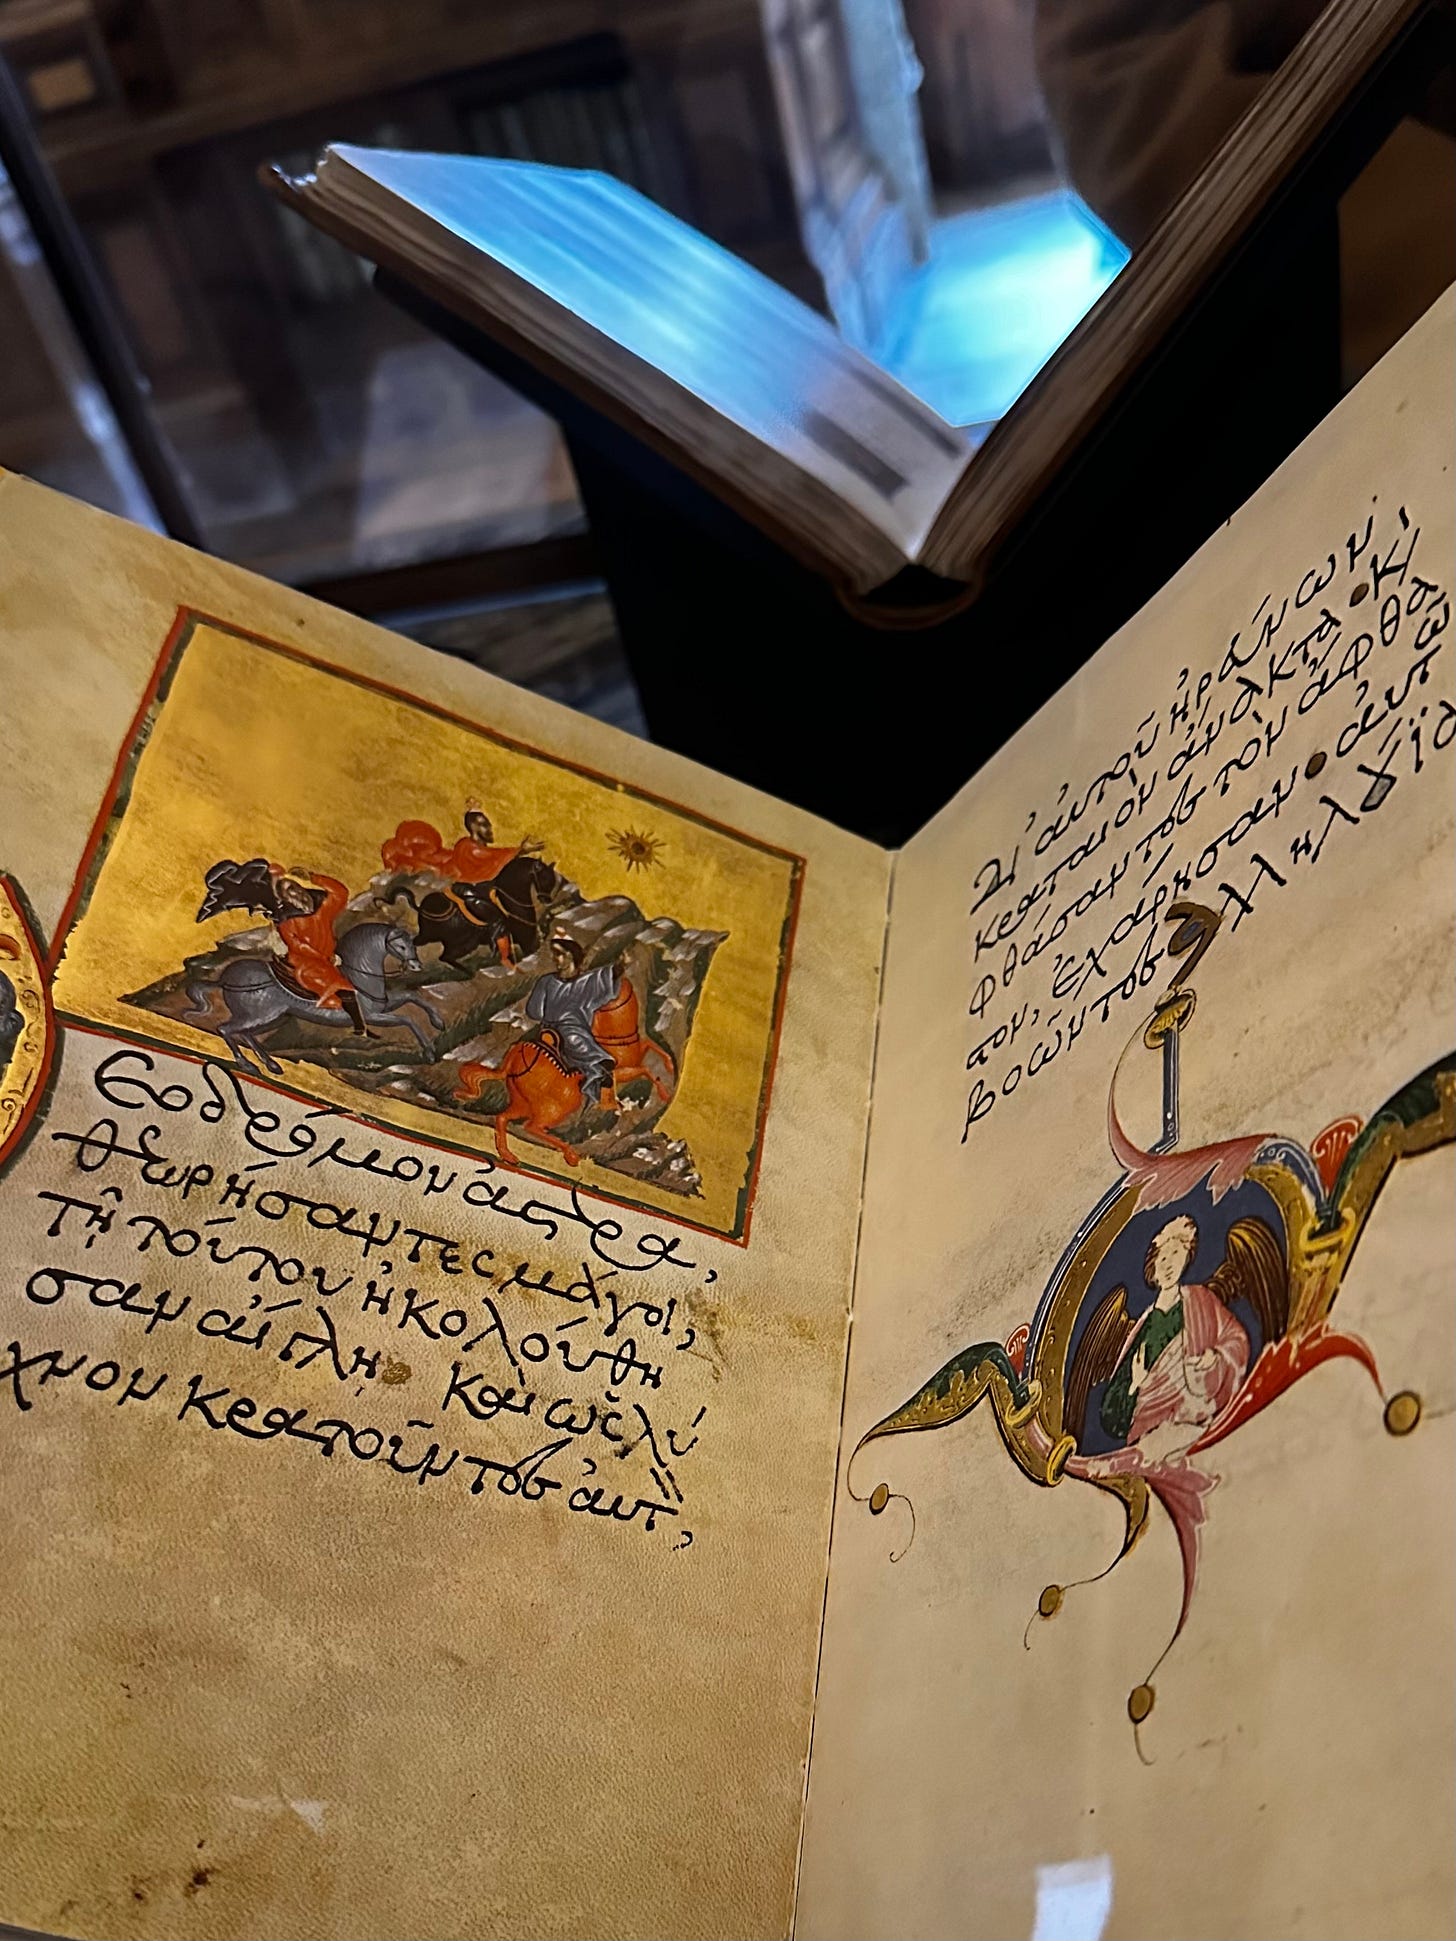 Εοδρόμον ἀστέρα,
θεωρήσαντες μάγοι,
τῆ τούτου ἠκολούθη
σαν αἴγλη· Καὶ ὡς λύ
χνον κρατοῦντες ἀυτ,
Δι' ἀυτοῦ ἠρεύνων
κραταιὸν ἄνακτα · κ,
φθάσαντες τὸν ἄφθα
στον, ἐχάρησαν · ἀυτῶ
βοῶντες ἀλληλούϊα